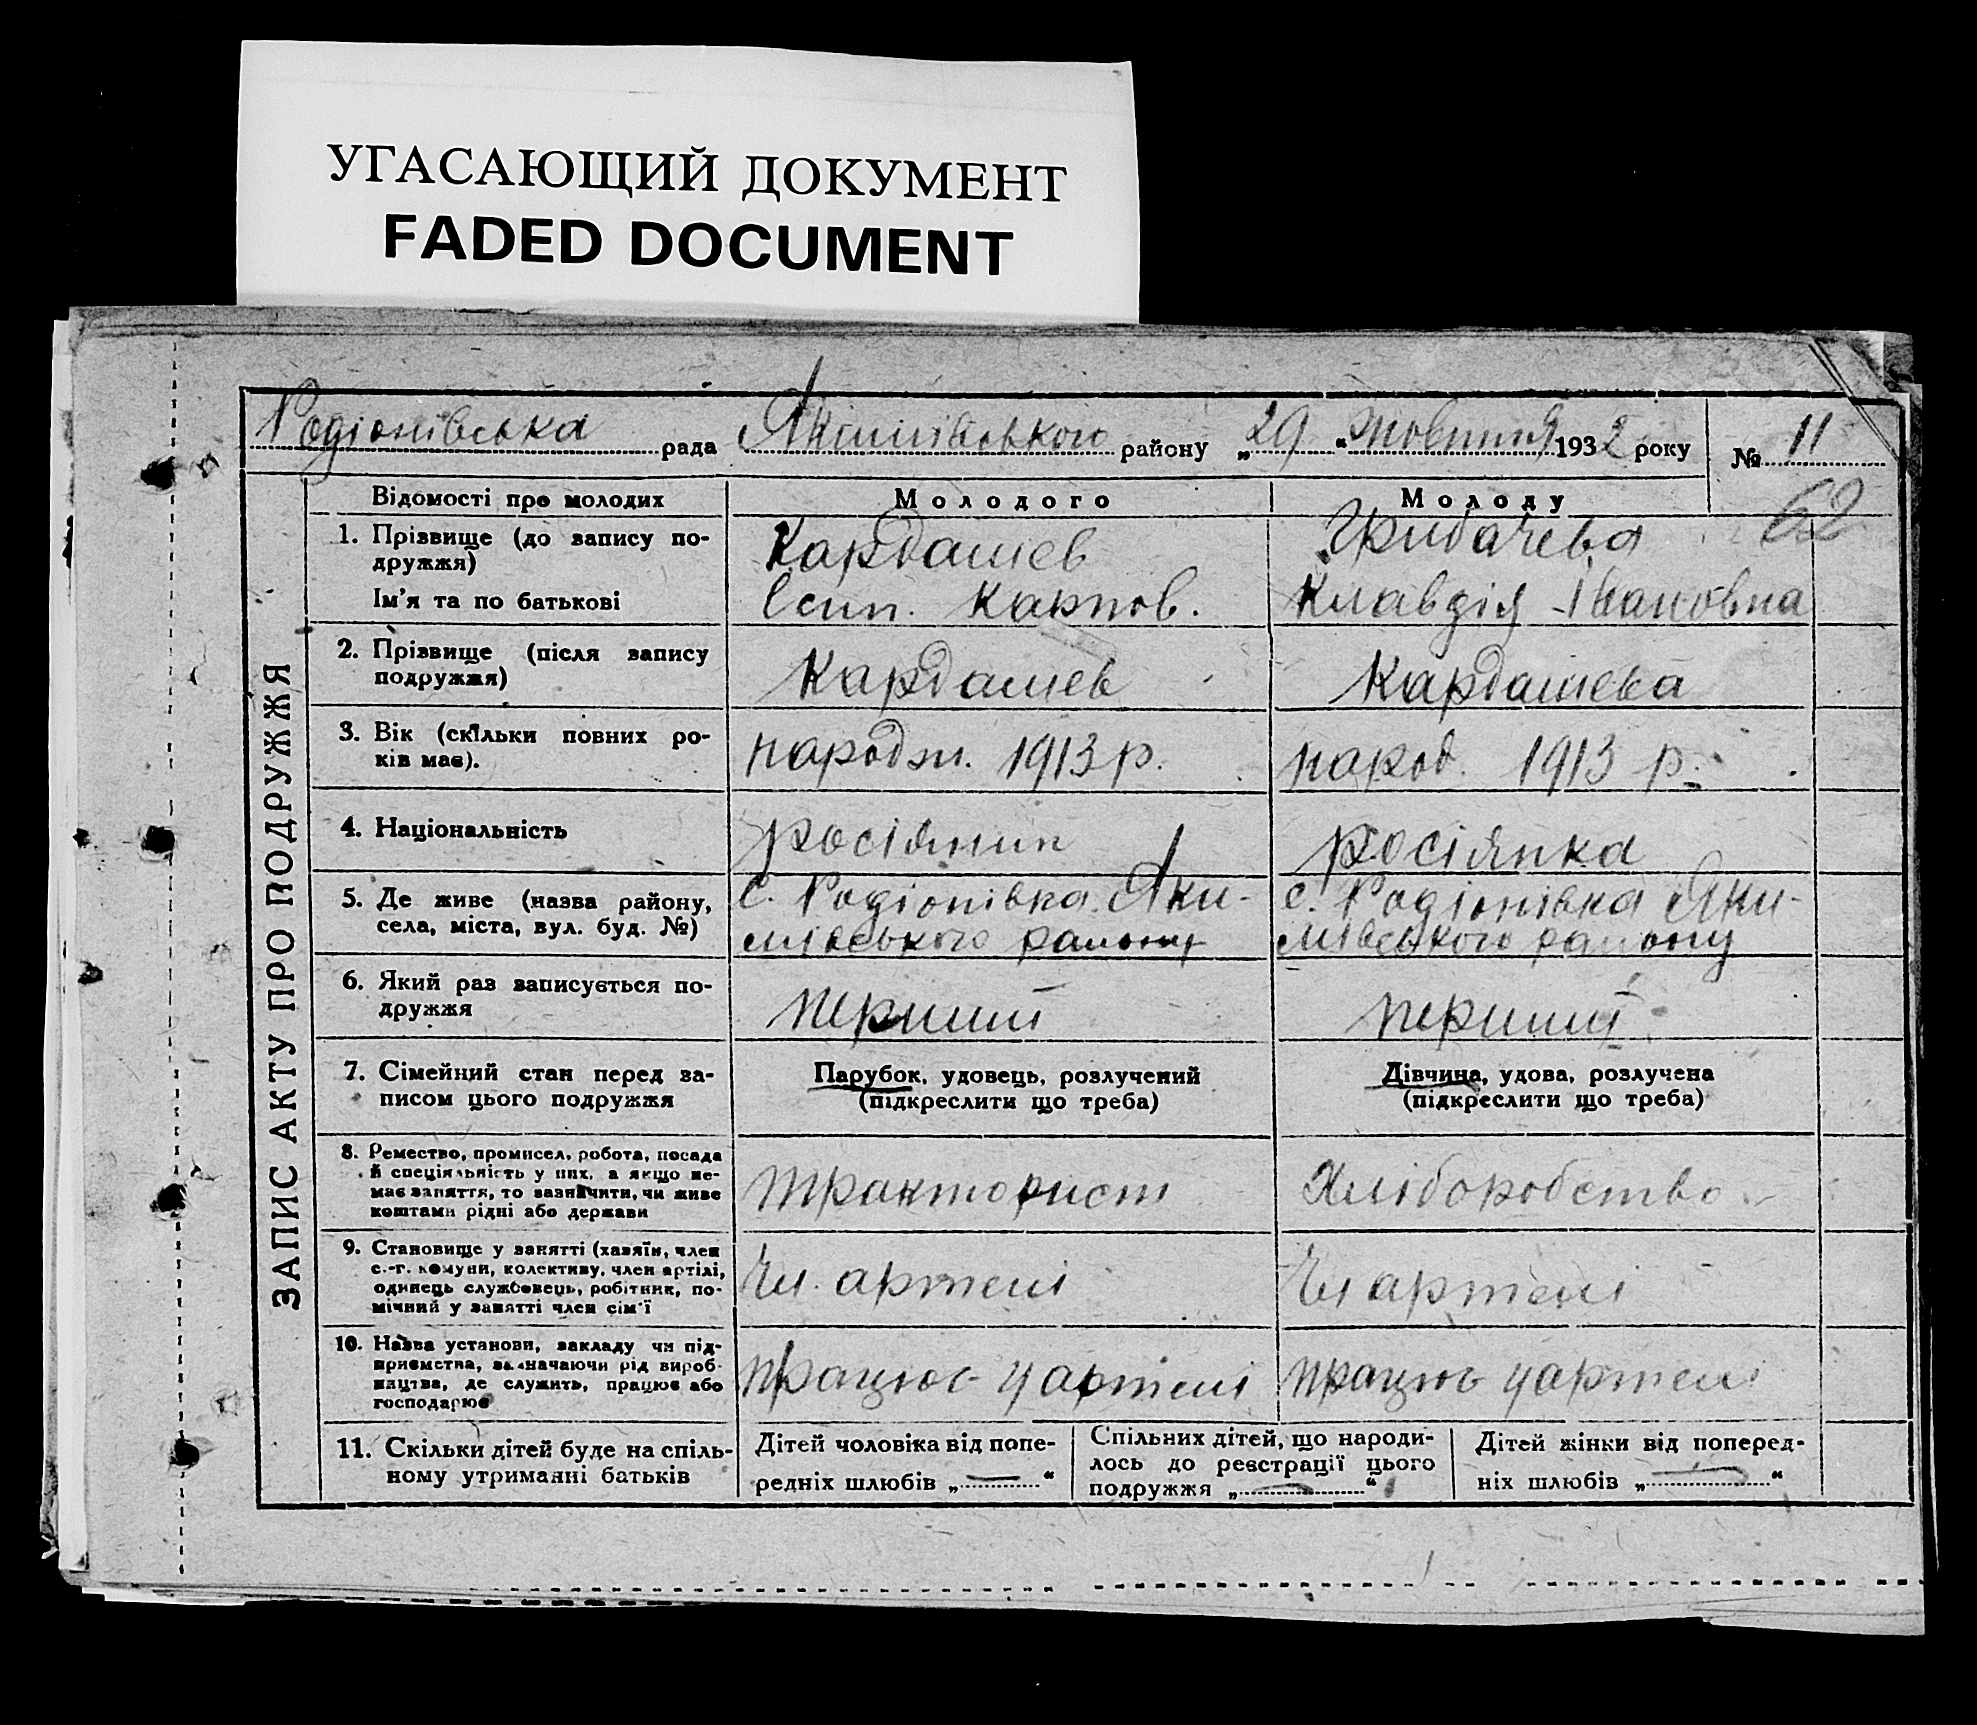 УГАСАЮЩИЙ ДОКУМЕНТ
FADED DOCUMENT
Родіонівська рада Якимівського району „29“ Жовтня 1932 року № 11
62
ЗАПИС АКТУ ПРО ПОДРУЖЖЯ
Відомості про молодих Молодого Молоду
1. Прізвище (до запису по-
дружжя) Кардашев Грибачева
Ім’я та по батькові Есип. Карпов. Клавдія Івановна
2. Прізвище (після запису
подружжя) Кардашев Кардашева
3. Вік (скільки повних ро-
ків має). народж. 1913 р. народ. 1913 р.
4. Національність росіянин росіянка
5. Де живе (назва району,
села, міста, вул. буд. №)
с. Родіонівка Яки-
мівського району
с. Родіонівка Яки-
мівського району
6. Який раз записується по-
дружжя перший перший
7. Сімейний стан перед за-
писом цього подружжя
Парубок, удовець, розлучений
(підкреслити що треба)
Дівчина, удова, розлучена
(підкреслити що треба)
8. Ремество, промисел, робота, посада
й спеціяльність у них, а якщо не-
має заняття, то зазначити, чи живе
коштами рідні або держави
тракторист Хліборобство
9. Становище у занятті (хазяїн, член
с.-г. комуни, колективу, член артілі,
одинець службовець, робітник, по-
мічний у занятті член сім’ї
Чл. артелі Чл артелі
10. Назва установи, закладу чи під-
приємства, зазначаючи рід вироб-
ництва, де служить, працює або
господарює
працює у артелі працює у артелі
11. Скільки дітей буде на спіль-
ному утриманні батьків
Дітей чоловіка від попе-
редніх шлюбів „—“
Спільних дітей, що народи-
лось до реєстрації цього
подружжя „—“
Дітей жінки від поперед-
ніх шлюбів „—“